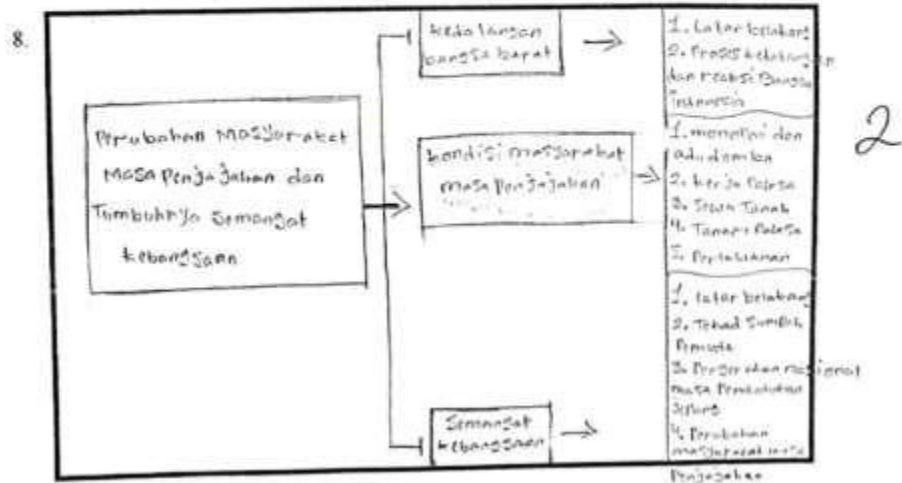 8.
Perubahan Masyarakat
Masa Penjajahan dan
Tumbuhnya Semangat
kebangsaan
kedatangan
bangsa barat
kondisi masyarakat
masa penjajahan
Semangat
kebangsaan
1. Latar belakang
2. Proses kedatangan
dan reaksi Bangsa
Indonesia
1. monopoli dan
adu domba
2. kerja Paksa
3. Sewa Tanah
4. Tanam Paksa
5. Perlawanan
1. latar belakang
2. Tekad Sumpah
Pemuda
3. Pergerakan nasional
masa Pendudukan
Jepang
4. Perubahan
masyarakat masa
Penjajahan
2